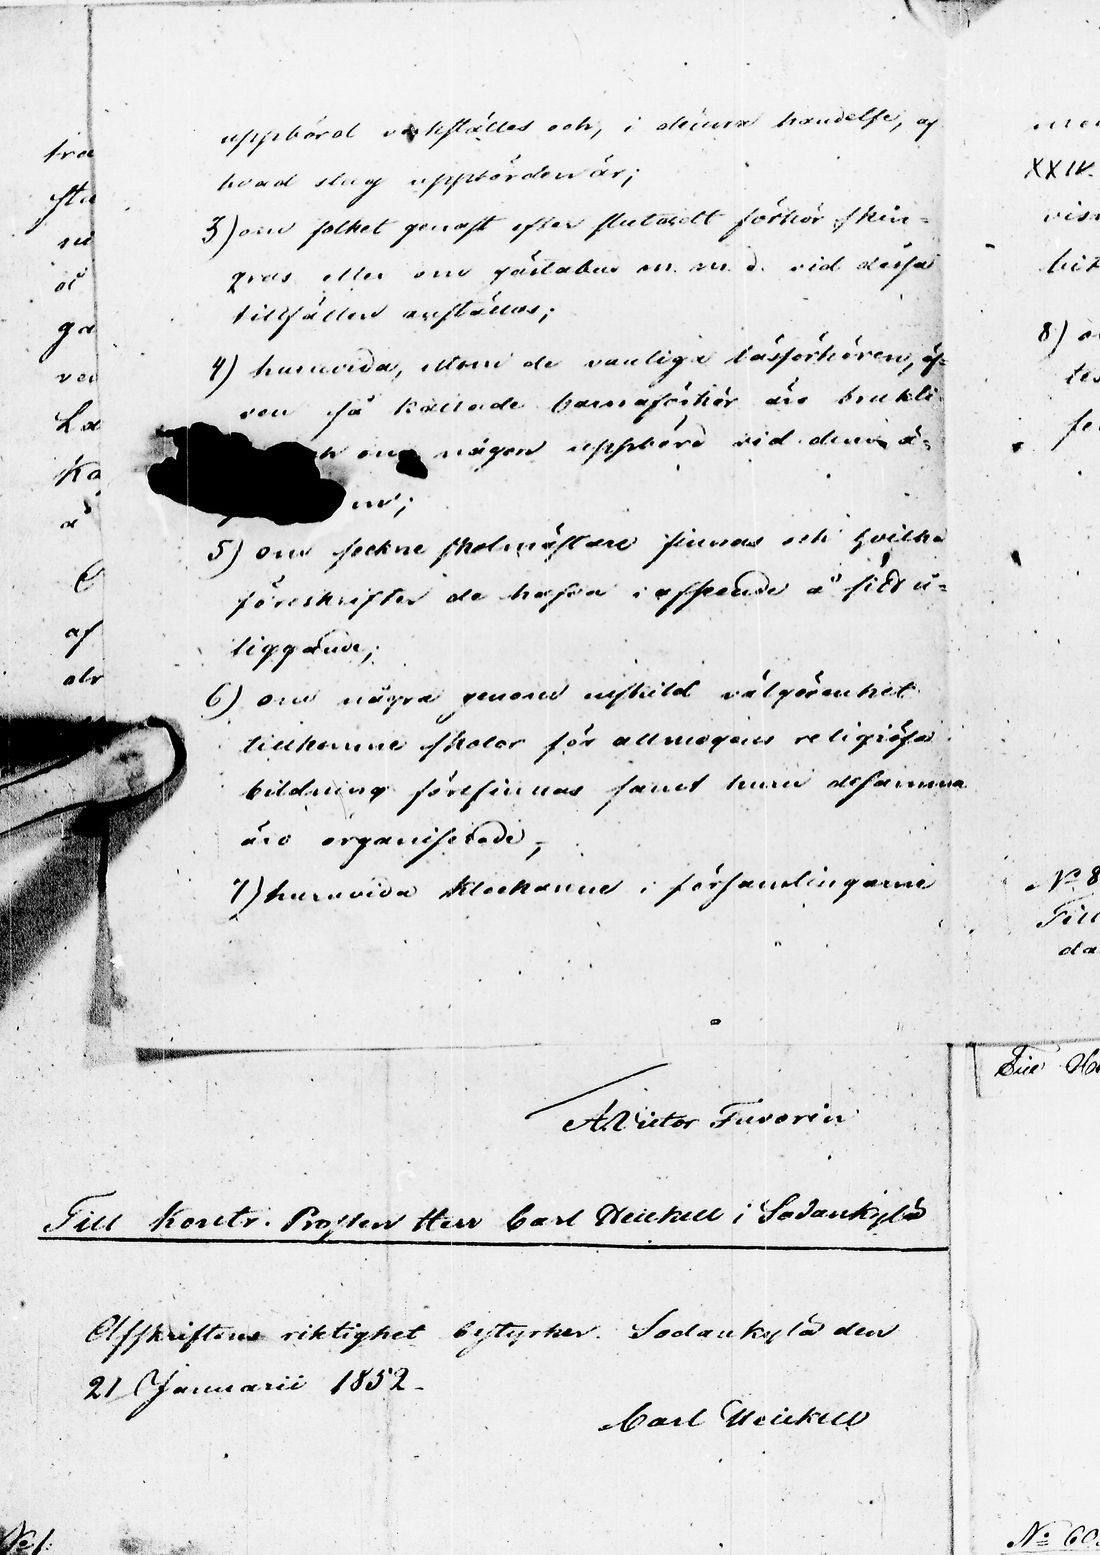 uppbörd verkställes och, i denna händelse, af
hvad slag uppbörden är;
3) om folket genast efter slutadt förhör skin-
gras eller om gästabud m. m. d. vid dessa
tillfällen anställas;
4) huruvida, utom de vanliga läsförhören, äf-
ven så kallade barnaförhör äro brukli-
om någon uppbörd vid dem ä-
5) om sockne skolmästare finnas och hvilka
föreskrifter de hafva i afseende å sitt å-
liggande;
6) om några genom enskild välgörenhet
tillkomne skolor för allmogens religiösa
bildning förefinnas samt huru desamma
äro organiserade;
7) huruvida klockarne i församlingarne
A. Victor Favorin
Till Kontr. Prosten Herr Carl Heickell i Sodankylä
Afskriftens riktighet bestyrker. Sodankylä den
21 Januarii 1852.
Carl Heickell
tra
sta
ni
ga
Ka
af
XXIV.
8)
No 8
Till
da
No 60
No 1.